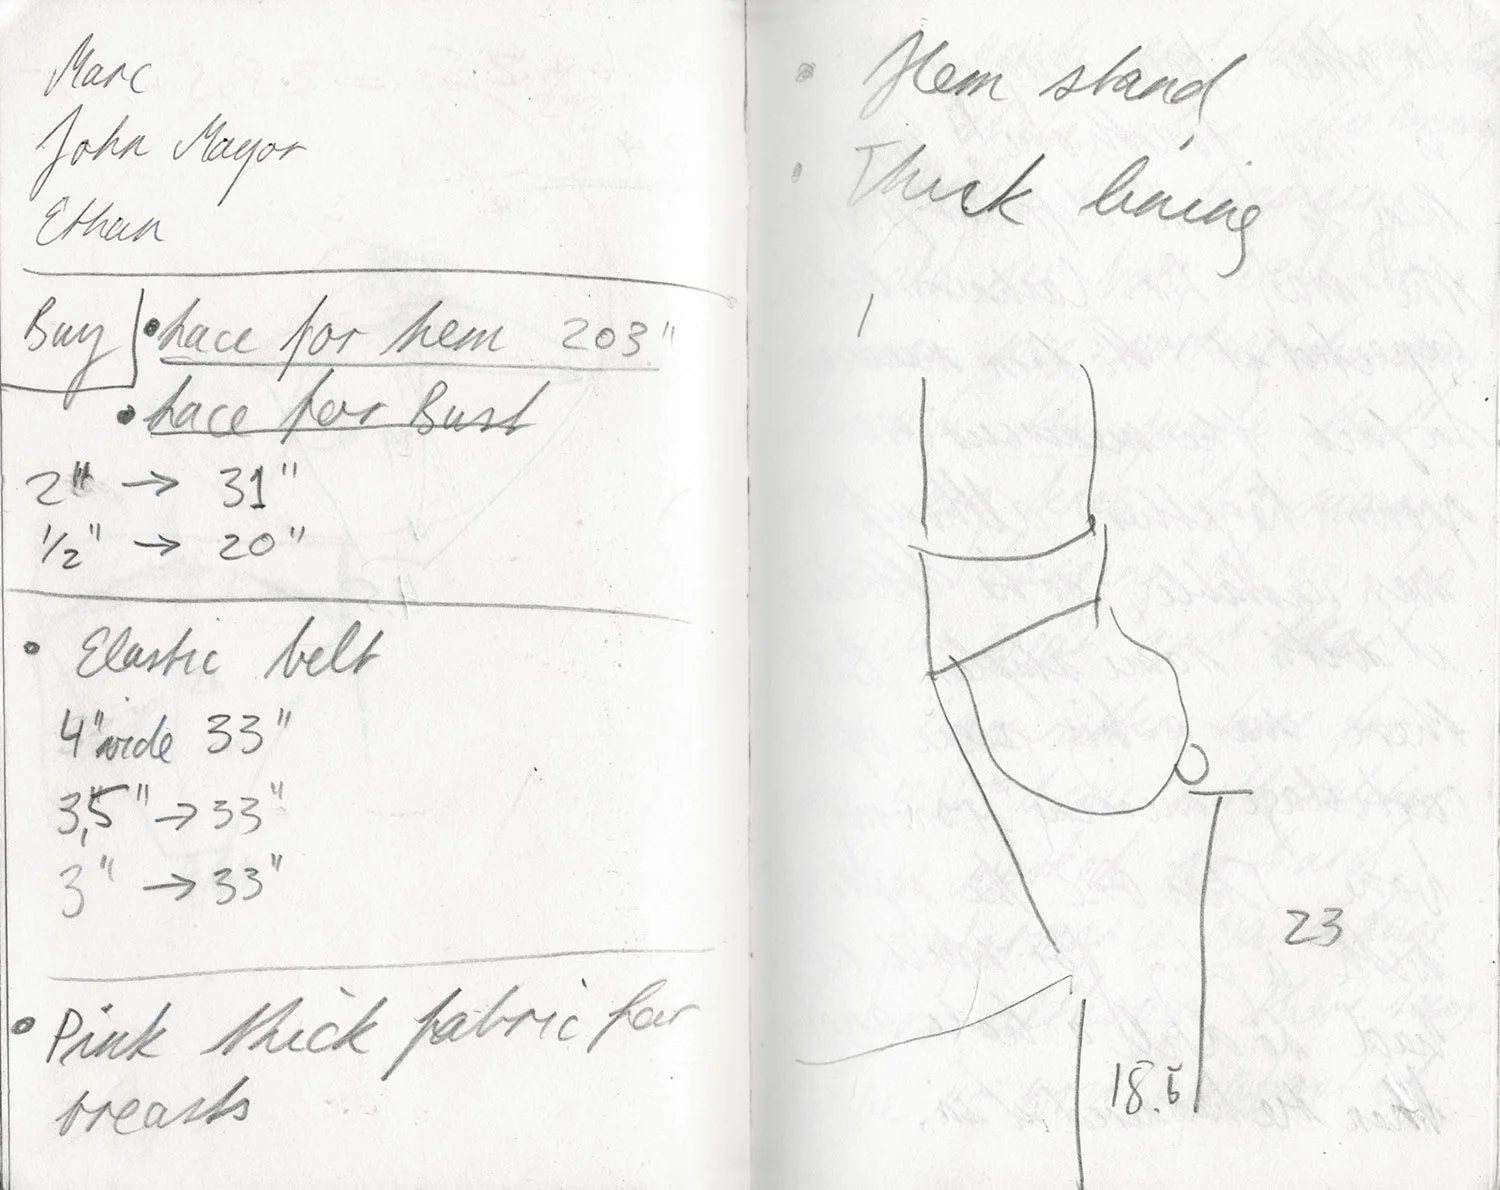 Marc
John Mayor
Ethan
Buy
• Lace for hem 203"
• Lace for Bust
2" → 31"
1/2" → 20"
• Elastic belt
4" wide 33"
3,5" → 33"
3" → 33"
• Pink thick fabric for
breasts
• Hem stand
• Thick lining
23
18.5